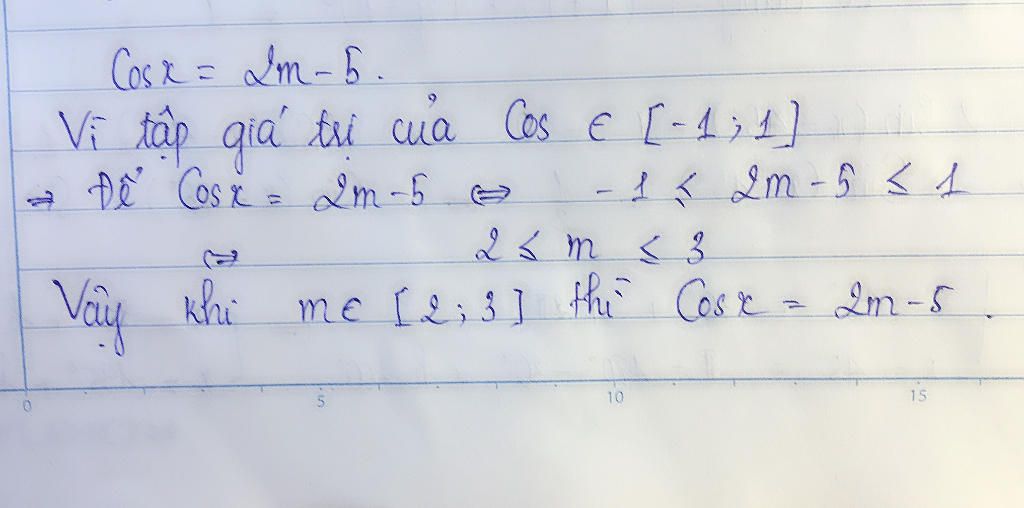 Cosx = 2m - 5.
Vì tập giá trị của Cos ∈ [-1; 1]
⇒ Để Cosx = 2m - 5 ⇔ -1 ≤ 2m - 5 ≤ 1
⇔ 2 ≤ m ≤ 3
Vậy khi m ∈ [2; 3] thì Cosx = 2m - 5.
0 5 10 15